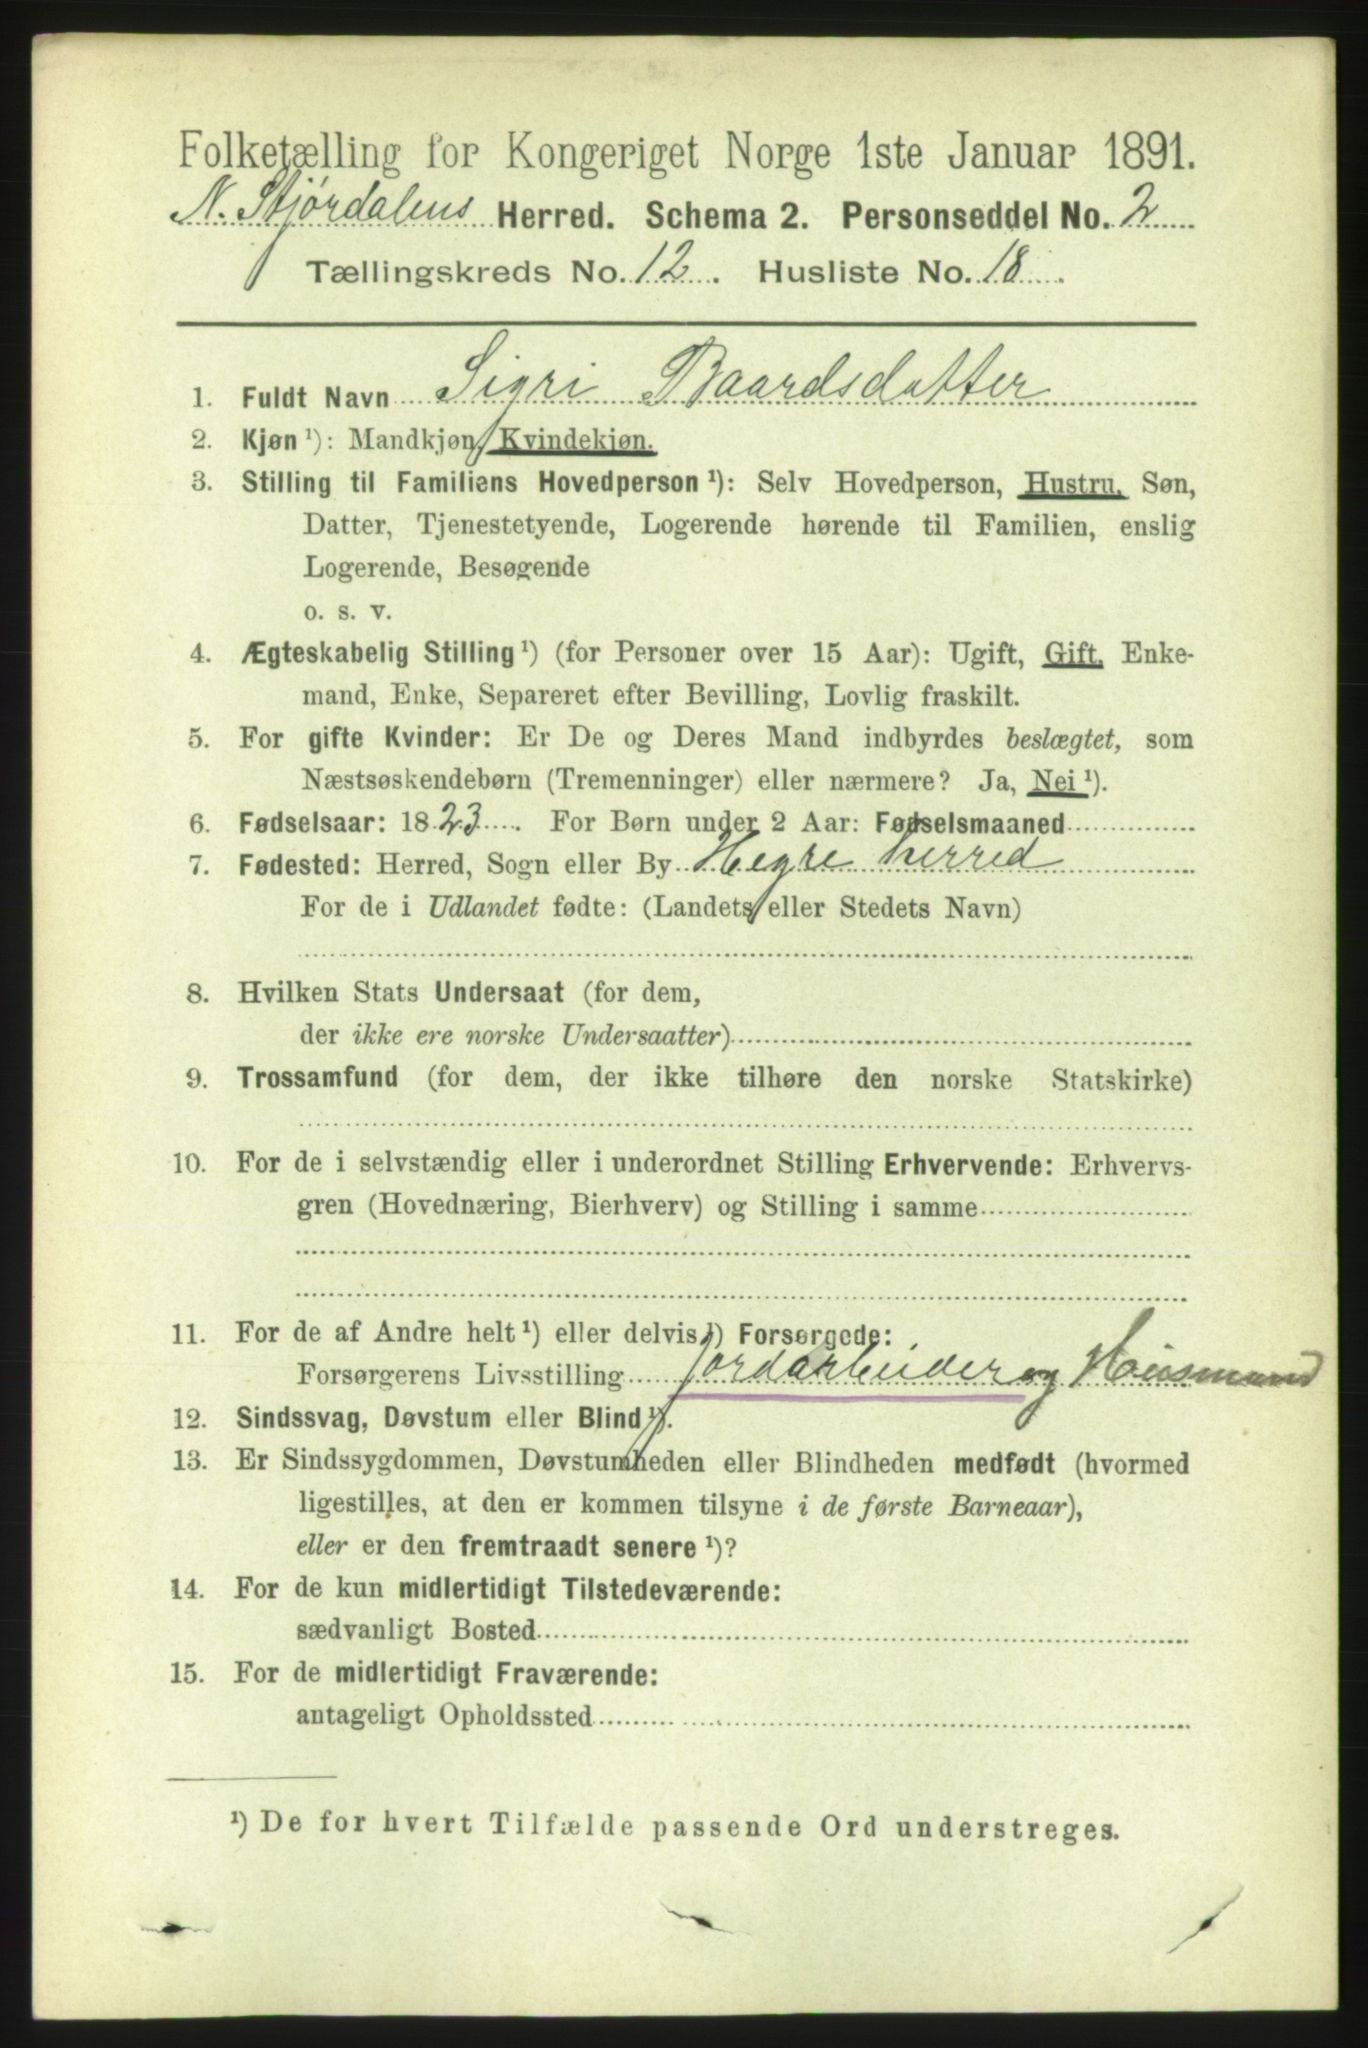 Folketælling for Kongeriget Norge 1ste Januar 1891.
N. Stjørdalens Herred. Schema 2. Personseddel No. 2
Tællingskreds No. 12. Husliste No. 18.
1. Fuldt Navn Sigri Baardsdatter
2. Kjøn ¹): Mandkjøn, Kvindekjøn.
3. Stilling til Familiens Hovedperson ¹): Selv Hovedperson, Hustru, Søn,
Datter, Tjenestetyende, Logerende hørende til Familien, enslig
Logerende, Besøgende
o. s. v.
4. Ægteskabelig Stilling ¹) (for Personer over 15 Aar): Ugift, Gift, Enke-
mand, Enke, Separeret efter Bevilling, Lovlig fraskilt.
5. For gifte Kvinder: Er De og Deres Mand indbyrdes beslægtet, som
Næstsøskendebørn (Tremenninger) eller nærmere? Ja, Nei ¹).
6. Fødselsaar: 1823. For Børn under 2 Aar: Fødselsmaaned
7. Fødested: Herred, Sogn eller By Hegre herred
For de i Udlandet fødte: (Landets eller Stedets Navn)
8. Hvilken Stats Undersaat (for dem,
der ikke ere norske Undersaatter)
9. Trossamfund (for dem, der ikke tilhøre den norske Statskirke)
10. For de i selvstændig eller i underordnet Stilling Erhvervende: Erhvervs-
gren (Hovednæring, Bierhverv) og Stilling i samme
11. For de af Andre helt ¹) eller delvis ¹) Forsørgede:
Forsørgerens Livsstilling Jordarbeider og Husmand
12. Sindssvag, Døvstum eller Blind ¹).
13. Er Sindssygdommen, Døvstumheden eller Blindheden medfødt (hvormed
ligestilles, at den er kommen tilsyne i de første Barneaar),
eller er den fremtraadt senere ¹)?
14. For de kun midlertidigt Tilstedeværende:
sædvanligt Bosted
15. For de midlertidigt Fraværende:
antageligt Opholdssted
¹) De for hvert Tilfælde passende Ord understreges.